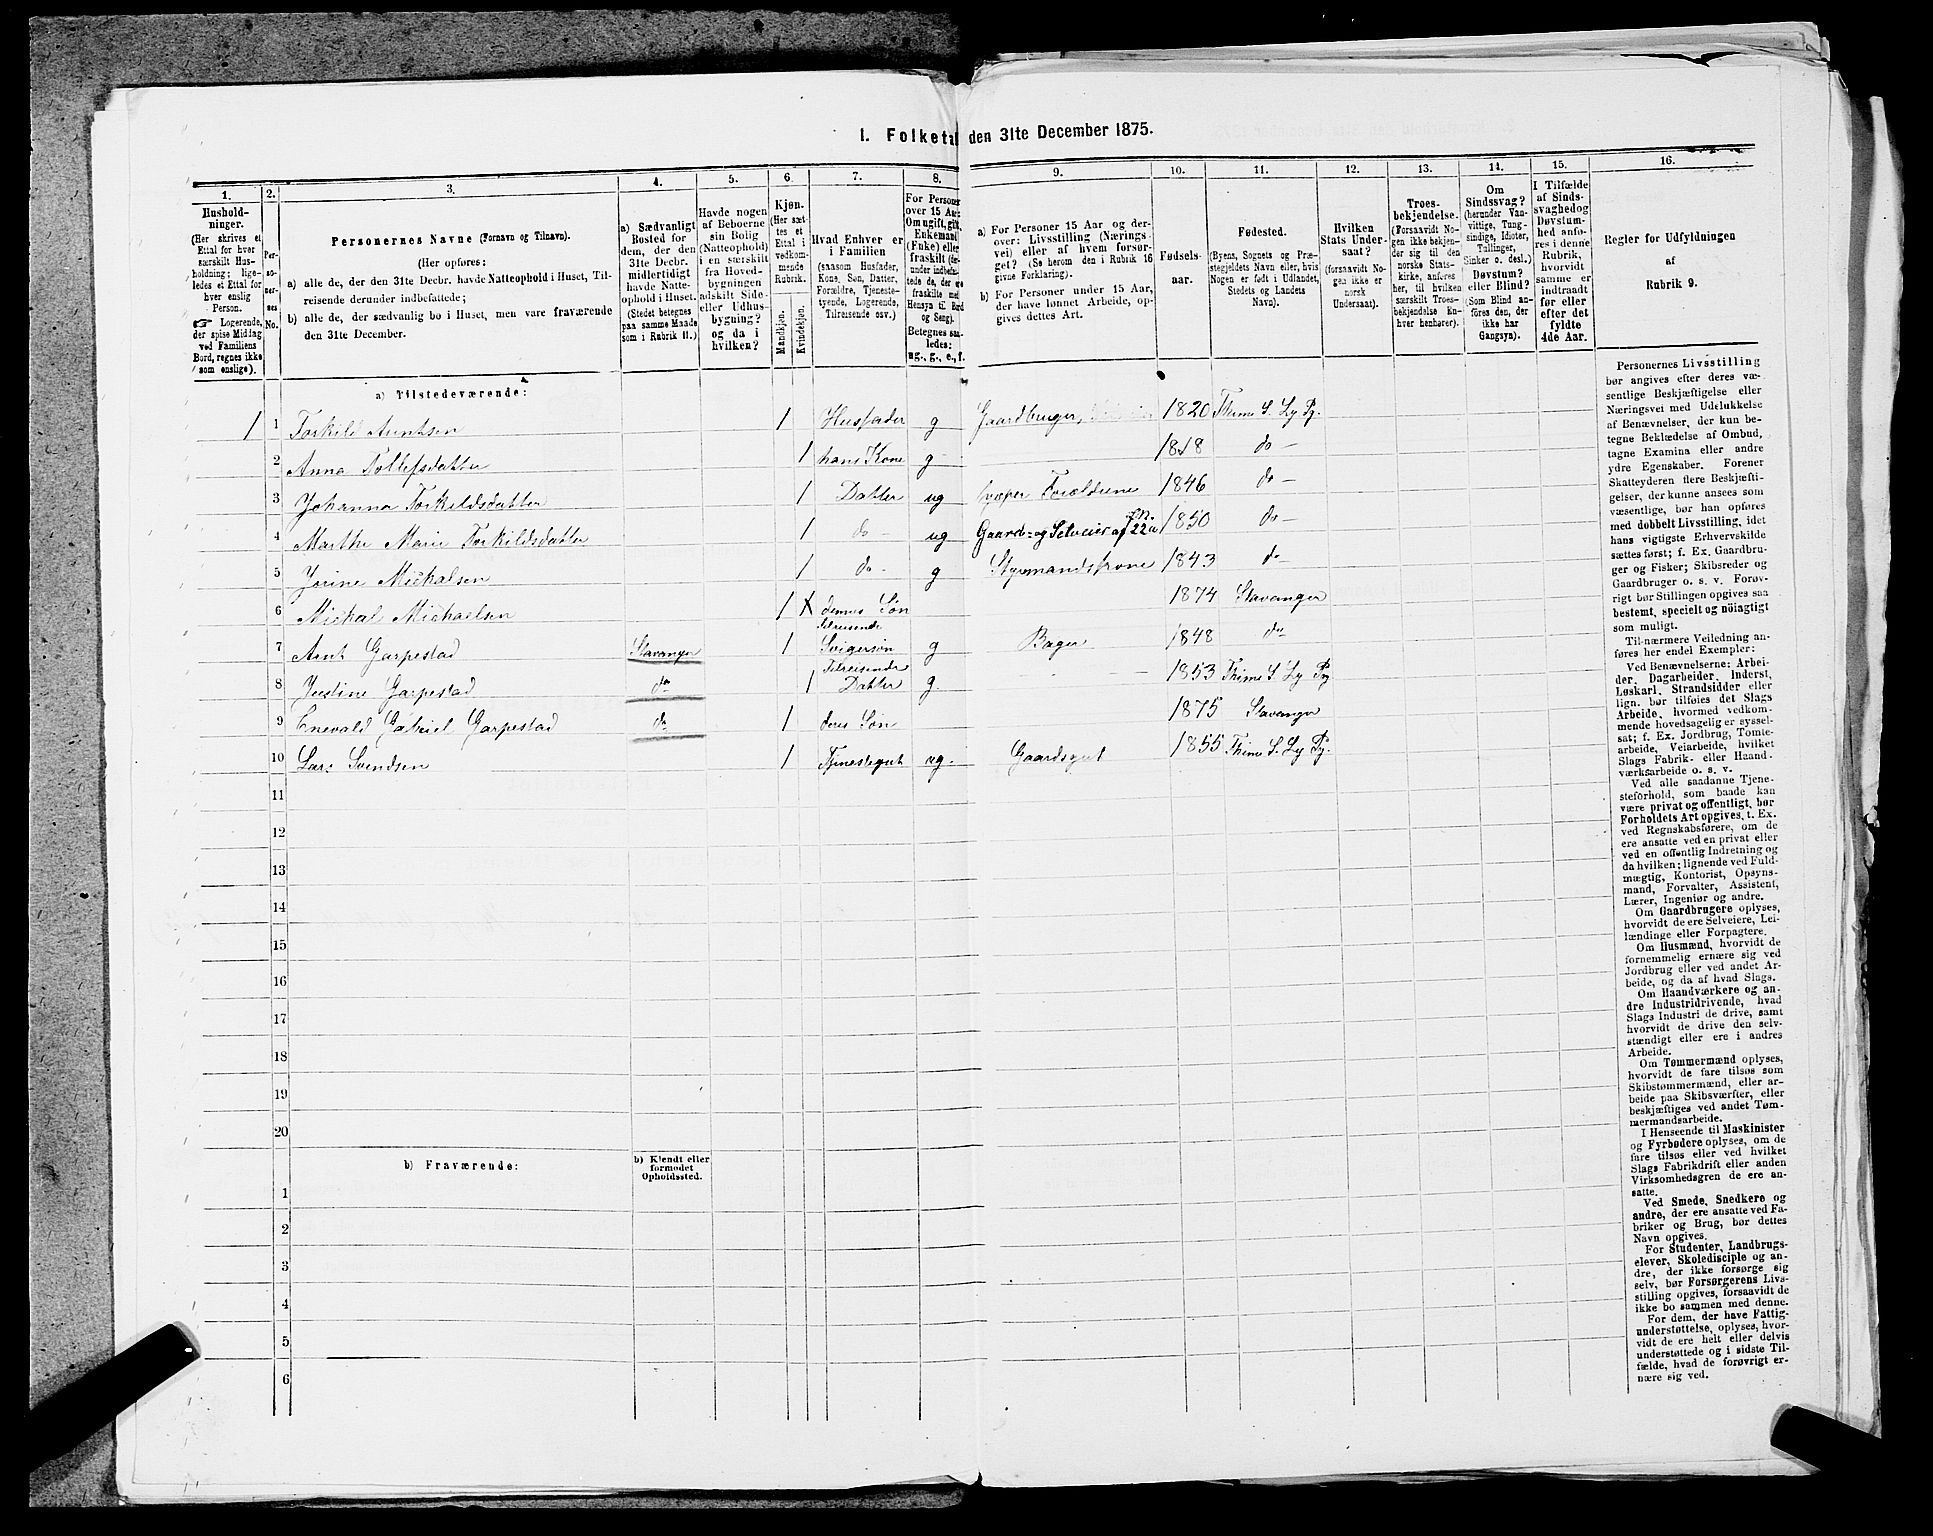 1. Folketal den 31te December 1875.
1.
2.
3.
4.
5.
6.
7.
8.
9.
10.
11.
12.
13.
14.
15.
16.
Hushold-
ninger.
(Her skrives et
Ettal for hver
særskilt Hus-
holdning; lige-
ledes et Ettal for
hver enslig
Person.
☞ Logerende,
der spise Middag
ved Familiens
Bord, regnes ikke
som enslige).
Per-
so-
ner-
nes
No.
Personernes Navne (Fornavn og Tilnavn).
(Her opføres:
a) alle de, der den 31te Decbr. havde Natteophold i Huset, Til-
reisende derunder indbefattede;
b) alle de, der sædvanlig bo i Huset, men vare fraværende
den 31te December.
a) Sædvanligt
Bosted for
dem, der den
31te Decbr.
midlertidigt
havde Natte-
ophold i Huset.
(Stedet betegnes
paa samme Maade
som i Rubrik 11.)
Havde nogen
af Beboerne
sin Bolig
(Natteophold)
i en særskilt
fra Hoved-
bygningen
adskilt Side-
eller Udhus-
bygning?
og da i
hvilken?
Kjøn.
(Her sæt-
tes et
Ettal i
vedkom-
mende
Rubrik.)
Mandkjøn.
Kvindekjøn.
Hvad Enhver er
i Familien
(saasom Husfader,
Kone, Søn, Datter,
Forældre, Tjeneste-
tyende, Logerende,
Tilreisende osv.)
For Personer
over 15 Aar:
Om ugift, gift,
Enkemand
(Enke) eller
fraskilt
Betegnes saa-
ledes:
ug., g., e., f.
a) For Personer 15 Aar og der-
over: Livsstilling (Nærings-
vei) eller af hvem forsør-
get? (Se herom den i Rubrik 16
givne Forklaring).
b) For Personer under 15 Aar,
der have lønnet Arbeide, op-
gives dettes Art.
Fødsels-
aar.
Fødested.
(Byens, Sognets og Præ-
stegjeldets Navn eller, hvis
Nogen er født i Udlandet,
Stedets og Landets
Navn).
Hvilken
Stats Under-
saat?
(forsaavidt No-
gen ikke er
norsk
Undersaat).
Troes-
bekjendelse.
(Forsaavidt No-
gen ikke bekjen-
der sig til den
norske Stats-
kirke, anføres
her, til hvilken
særskilt Troes-
bekjendelse En-
hver henhører).
Om
Sindssvag?
(herunder Van-
vittige, Tung-
sindige, Idioter,
Tullinger,
Sinker o. desl.)
Døvstum?
eller Blind?
(Som Blind an-
føres den, der
ikke har
Gangsyn).
I Tilfælde
af Sinds-
svaghed og
Døvstum-
hed anfø-
res i denne
Rubrik,
hvorvidt
samme er
indtraadt
før eller
efter det
fyldte
4de Aar.
Regler for Udfyldningen
af
Rubrik 9.
a) Tilstedeværende:
1 1 Torkild Arntsen 1 Husfader g Gaardbruger, 1820 Thime S. Ly Pj.
2 Anna Tollefsdatter 1 hans Kone g 1818 do
3 Johanna Torkildsdatter 1 Datter ug hjælper Forældrene 1846 do
4 Marthe Marie Torkildsdatter 1 do ug Gaard- og Selveier af 22a 1850 do
5 Jorine Michalsen 1 do g Styrmandskone 1843 do
6 Michal Michaelsen 1 dennes Søn 1874 Stavanger
7 Arnt Garpestad Stavanger 1 tilreisende Svigersøn g Bager 1848 do
8 Justine Garpestad do 1 Tilreisende Datter g. 1853 Thime S Ly Pj
9 Enevald Gabriel Garpestad do 1 deres Søn 1875 Stavanger
10 Lars Svendsen 1 Tjenestegut ug. Gaardsgut 1855 Thime S. Ly Pj.
11
12
13
14
15
16
17
18
19
20
b) Fraværende:
b) Kjendt eller
formodet
Opholdssted.
1
2
3
4
5
6
Personernes Livsstilling
bør angives efter deres væ-
sentlige Beskjæftigelse eller
Næringsvei med Udelukkelse
af Benævnelser, der kun be-
tegne Beklædelse af Ombud,
tagne Examina eller andre
ydre Egenskaber. Forener
Skatteyderen flere Beskjæfti-
gelser, der kunne ansees som
væsentlige, bør han opføres
med dobbelt Livsstilling, idet
hans vigtigste Erhvervskilde
sættes først; f. Ex. Gaardbru-
ger og Fisker; Skibsreder og
Gaardbruger o. s. v. Forøv-
rigt bør Stillingen opgives saa
bestemt, specielt og nøiagtigt
som muligt.
Til nærmere Veiledning an-
føres her endel Exempler:
Ved Benævnelserne: Arbei-
der, Dagarbeider, Inderst,
Løskarl, Strandsidder eller
lign. bør tilføies det Slags
Arbeide, hvormed vedkom-
mende hovedsagelig er syssel-
sat; f. Ex. Jordbrug, Tomte-
arbeide, Veiarbeide, hvilket
Slags Fabrik- eller Haand-
værksarbeide o. s. v.
Ved alle saadanne Tjene-
steforhold, som baade kan
være privat og offentligt, bør
Forholdets Art opgives, t. Ex.
ved Regnskabsførere, om de
ere ansatte ved en privat eller
ved en offentlig Indretning og
da hvilken; lignende ved Fuld-
mægtig, Kontorist, Opsyns-
mand, Forvalter, Assistent,
Lærer, Ingeniør og andre.
Om Gaardbrugere oplyses,
hvorvidt de ere Selveiere, Lei-
lændinge eller Forpagtere.
Om Husmænd, hvorvidt de
fornemmelig ernære sig ved
Jordbrug eller ved andet Ar-
beide, og da af hvad Slags.
Om Haandværkere og an-
dre Industridrivende, hvad
Slags Industri de drive, samt
hvorvidt de drive den selv-
stændigt eller ere i andres
Arbeide.
Om Tømmermænd oplyses,
hvorvidt de fare tilsøs som
Skibstømmermænd, eller ar-
beide paa Skibsværfter, eller
beskjæftiges ved andet Tøm-
mermandsarbeide.
I Henseende til Maskinister
og Fyrbødere oplyses, om de
fare tilsøs eller ved hvilket
Slags Fabrikdrift eller anden
Virksomhedsgren de ere an-
satte.
Ved Smede, Snedkere og
andre, der ere ansatte ved Fa-
briker og Brug, bør dettes
Navn opgives.
For Studenter, Landbrugs-
elever, Skoledisciple og an-
dre, der ikke forsørge sig
selv, bør Forsørgerens Livs-
stilling opgives, forsaavidt de
ikke bo sammen med denne.
For dem, der have Fattig-
understøttelse, oplyses, hvor-
vidt de ere helt eller delvis
understøttede og i sidste Til-
fælde, hvad de forøvrigt er-
nære sig ved.